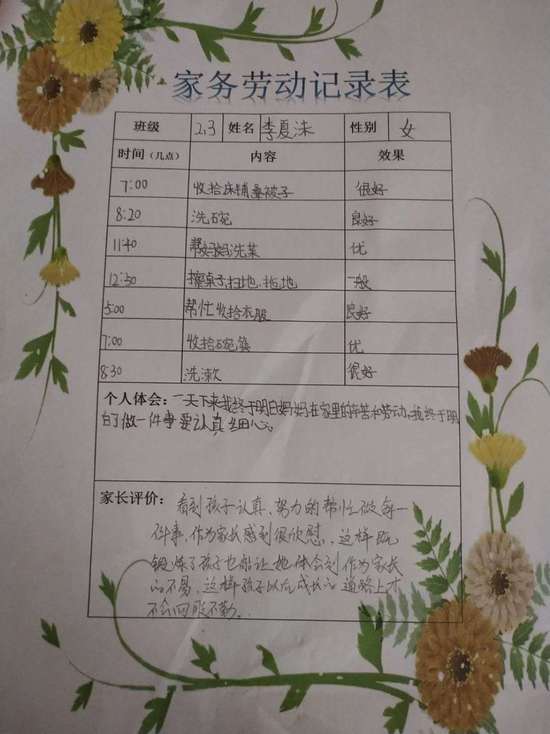 家务劳动记录表
班级 2.3 姓名 李夏沫 性别 女
时间（几点） 内容 效果
7:00 收拾床铺叠被子 很好
8:20 洗碗 良好
11:40 帮妈妈洗菜 优
12:30 擦桌子扫地.拖地 一般
5:00 帮忙收拾衣服 良好
7:00 收拾碗筷 优
8:30 洗漱 很好
个人体会：一天下来我终于明白妈妈在家里的辛苦和劳动,我终于明
白了做一件事要认真细心。
家长评价： 看到孩子认真、努力的帮忙做每一
件事,作为家长感到很欣慰,这样既
锻炼了孩子也能让她体会到作为家长
的不易,这样孩子以后成长的道路上才
不会四肢不勤.